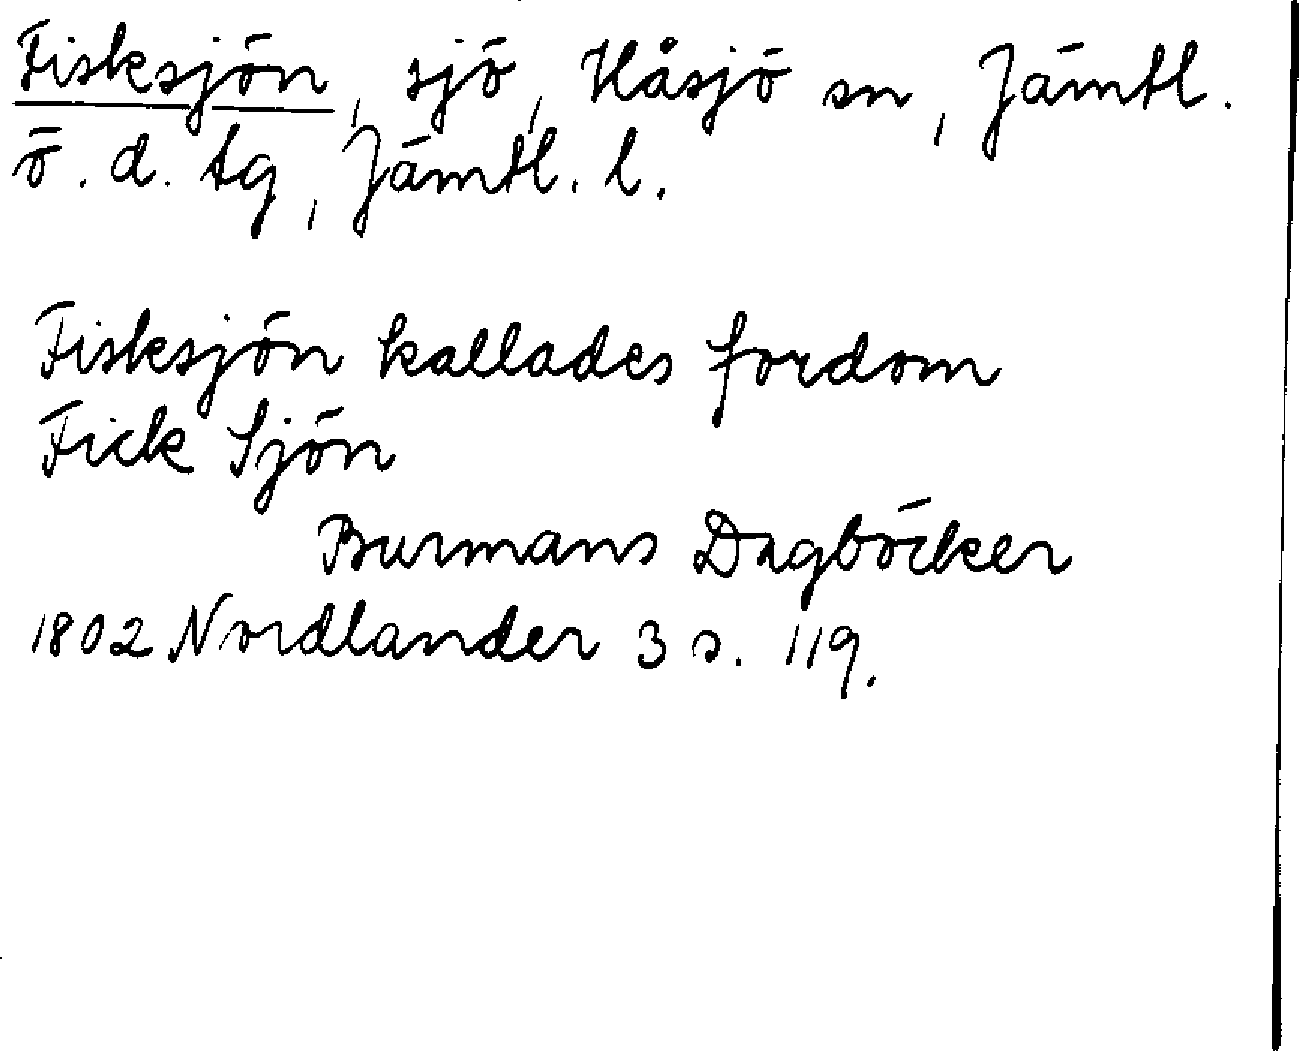 Fisksjön, sjö, Håsjö sn, Jämtl.
ö. d. tg, Jämtl. l.
Fisksjön kallades fordom
Fick Sjön
Burmans Dagböcker
1802 Nordlander 3 s. 119.